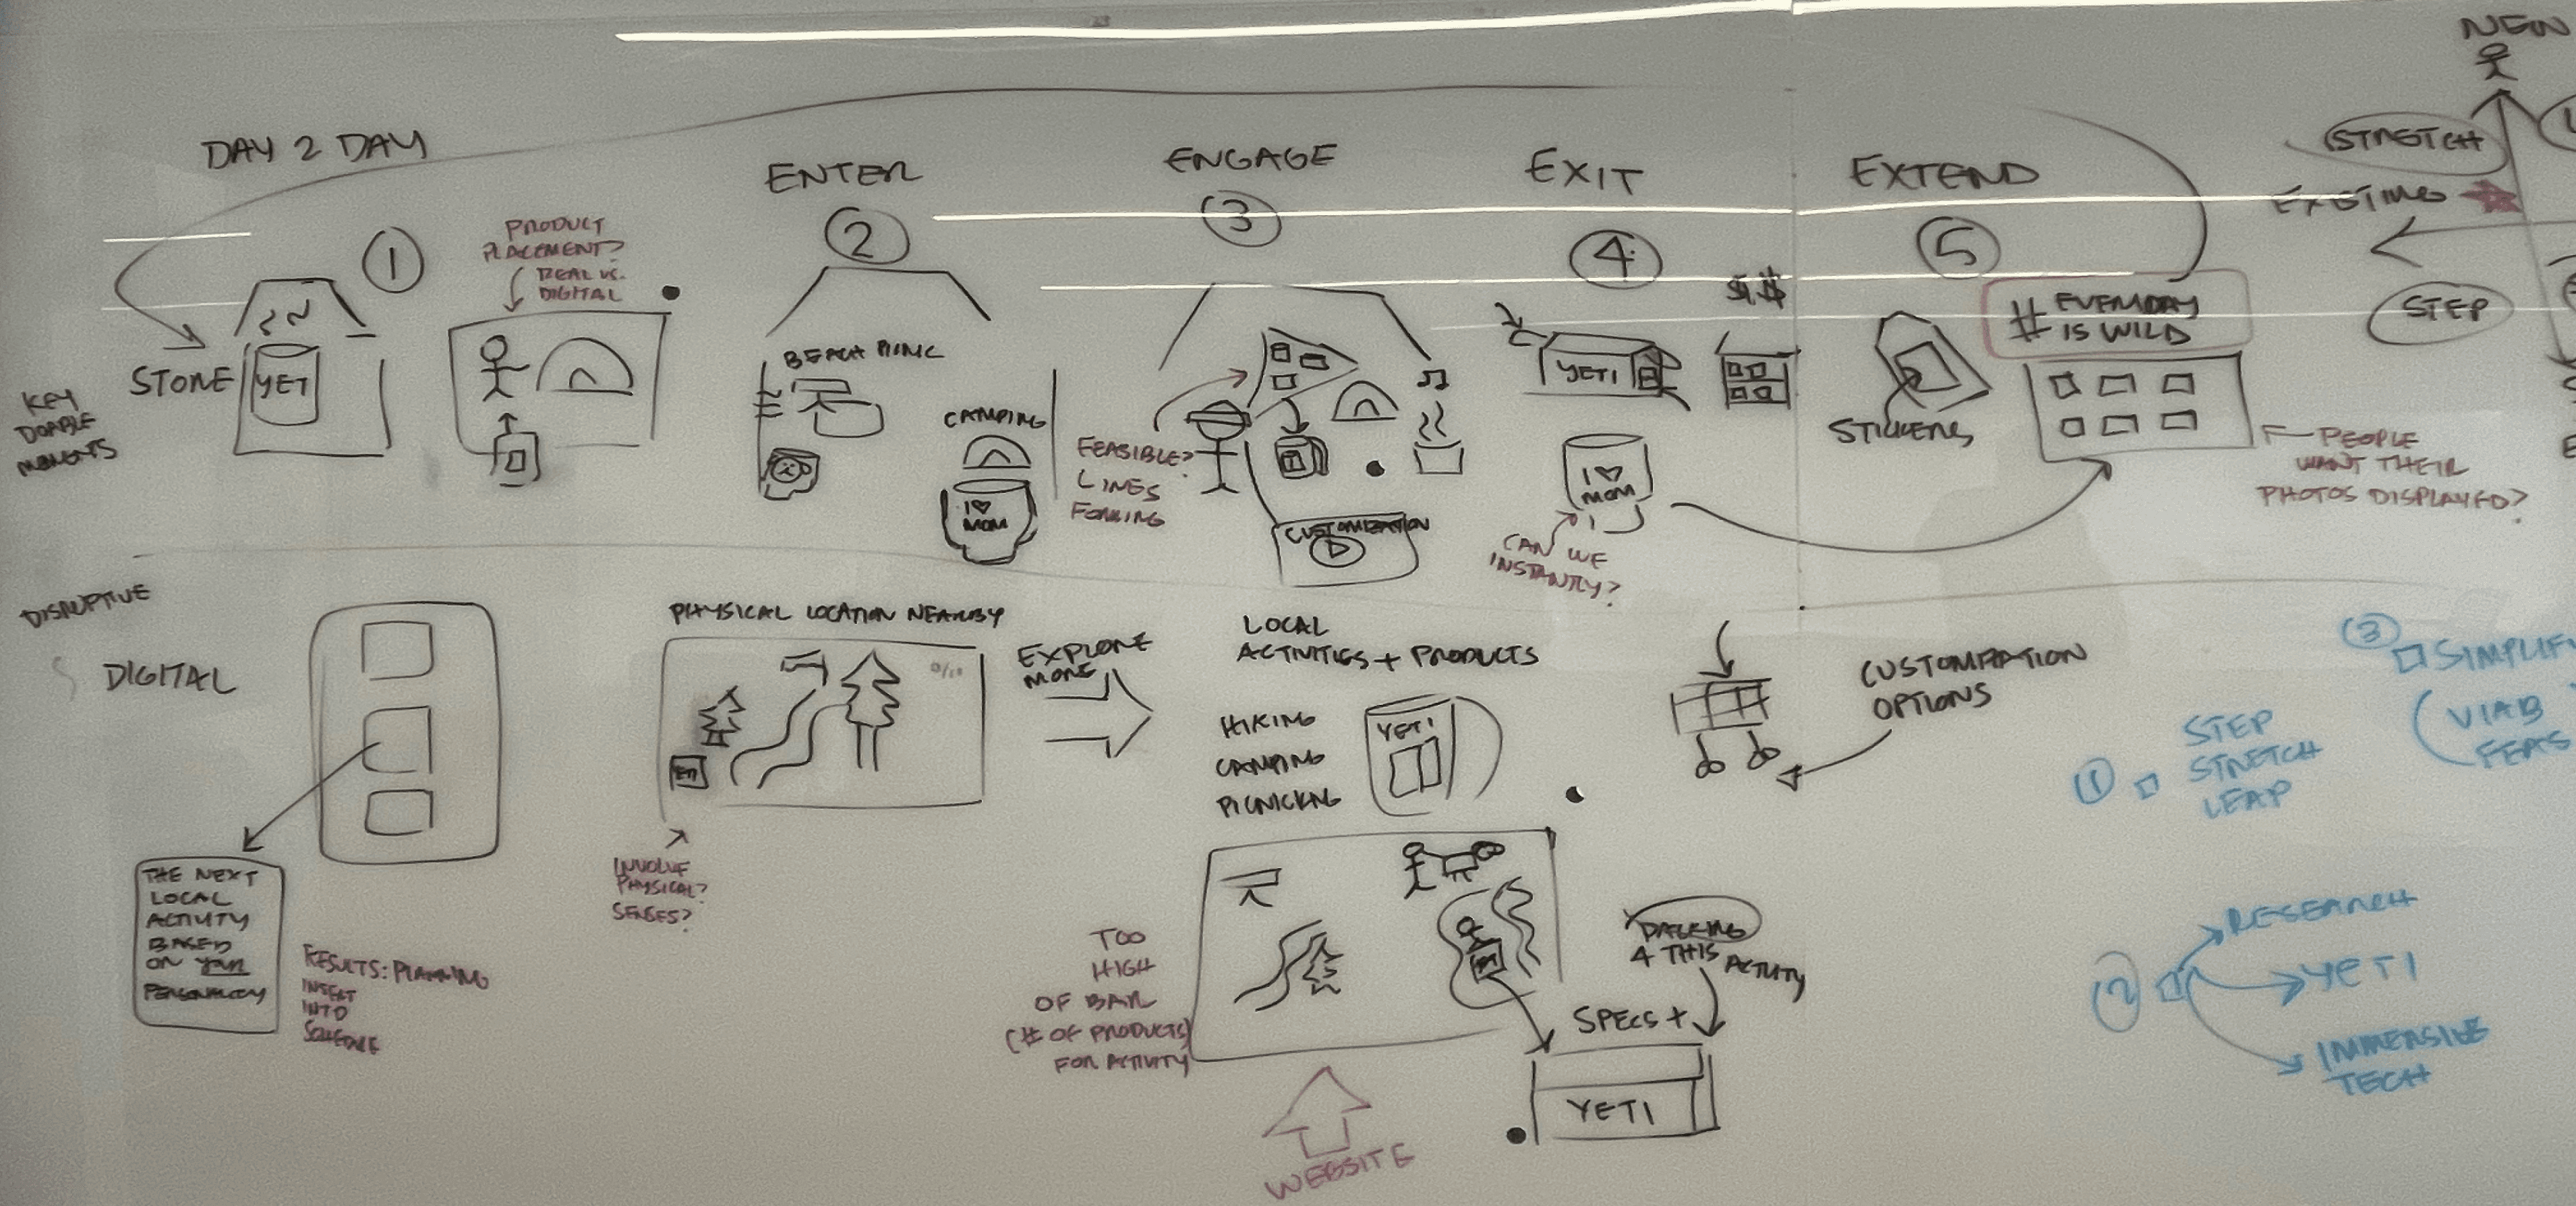 DAY 2 DAY
ENTER
ENGAGE
EXIT
EXTEND
NEW
STRETCH
EXISTING
STEP
1
2
3
4
5
PRODUCT
PLACEMENT?
REAL VS.
DIGITAL
KEY
DOABLE
MOMENTS
STORE
YETI
BEACH PICNIC
CAMPING
I ♡
MOM
FEASIBLE?
LINES
FORMING
CUSTOMIZATION
YETI
$$.$$
I ♡
MOM
CAN WE
INSTANTLY?
STICKERS
# EVERYDAY
IS WILD
PEOPLE
WANT THEIR
PHOTOS DISPLAYED?
DISRUPTIVE
DIGITAL
THE NEXT
LOCAL
ACTIVITY
BASED
ON YOUR
PERSONALITY
RESULTS: PLANNING
INSERT
INTO
SCHEDULE
PHYSICAL LOCATION NEARBY
INVOLVE
PHYSICAL?
SENSES?
EXPLORE
MORE
LOCAL
ACTIVITIES + PRODUCTS
HIKING
CAMPING
PICNICKING
YETI
TOO
HIGH
OF BAR
(# OF PRODUCTS)
FOR ACTIVITY
WEBSITE
CUSTOMIZATION
OPTIONS
PACKING
4 THIS
ACTIVITY
SPECS +
YETI
3
SIMPLIFY
VIAB
FEAS
1
STEP
STRETCH
LEAP
2
RESEARCH
YETI
IMMERSIVE
TECH